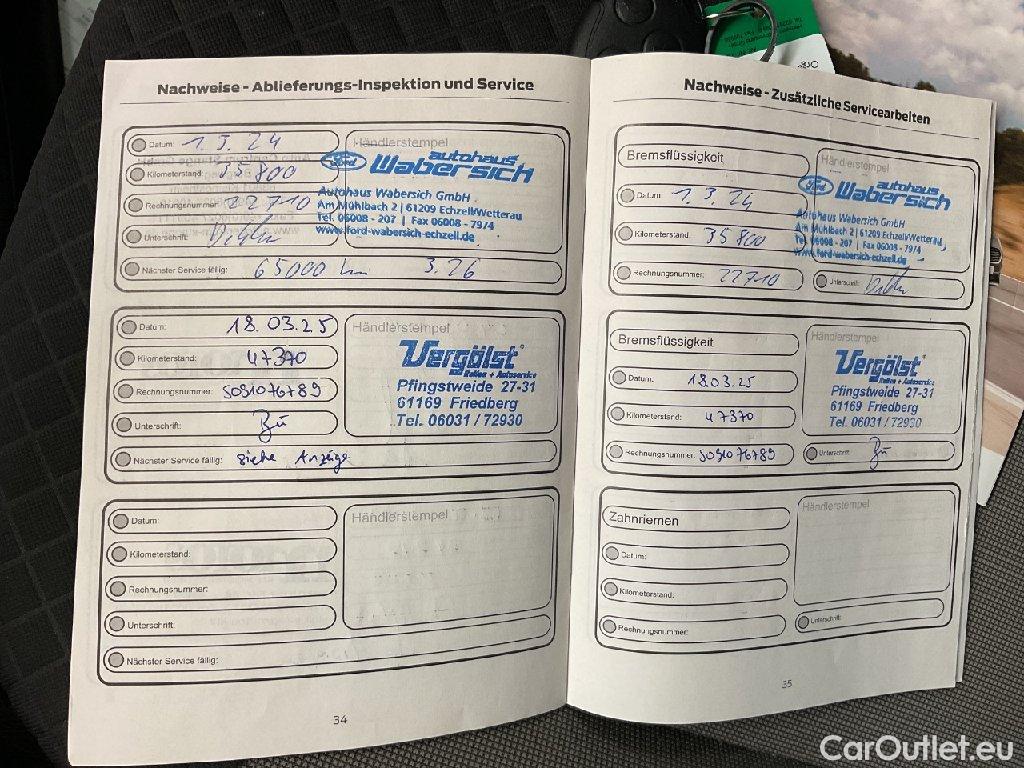 Nachweise - Ablieferungs-Inspektion und Service
Datum: 1.3.24
Kilometerstand: 35800
Rechnungsnummer: 22710
Unterschrift:
Nächster Service fällig: 65000 km 3.26
Händlerstempel
Ford autohaus Wabersich
Autohaus Wabersich GmbH
Am Mühlbach 2 | 61209 Echzell/Wetterau
Tel. 06008 - 207 | Fax 06008 - 79/4
www.ford-wabersich-echzell.de
Datum: 18.03.25
Kilometerstand: 47370
Rechnungsnummer: 5091076789
Unterschrift:
Nächster Service fällig: siehe Anzeige
Händlerstempel
Vergölst
Reifen + Autoservice
Pfingstweide 27-31
61169 Friedberg
Tel. 06031 / 72930
Datum:
Kilometerstand:
Rechnungsnummer:
Unterschrift:
Nächster Service fällig:
Händlerstempel
34
Nachweise - Zusätzliche Servicearbeiten
Bremsflüssigkeit
Datum: 1.3.24
Kilometerstand: 35800
Rechnungsnummer: 22710
Händlerstempel
Ford autohaus Wabersich
Autohaus Wabersich GmbH
Am Mühlbach 2 | 61209 Echzell/Wetterau
Tel. 06008 - 207 | Fax 06008 - 79/4
www.ford-wabersich-echzell.de
Unterschrift:
Bremsflüssigkeit
Datum: 18.03.25
Kilometerstand: 47370
Rechnungsnummer: 5091076789
Händlerstempel
Vergölst
Reifen + Autoservice
Pfingstweide 27-31
61169 Friedberg
Tel. 06031 / 72930
Unterschrift:
Zahnriemen
Datum:
Kilometerstand:
Rechnungsnummer:
Händlerstempel
Unterschrift:
35
CarOutlet.eu